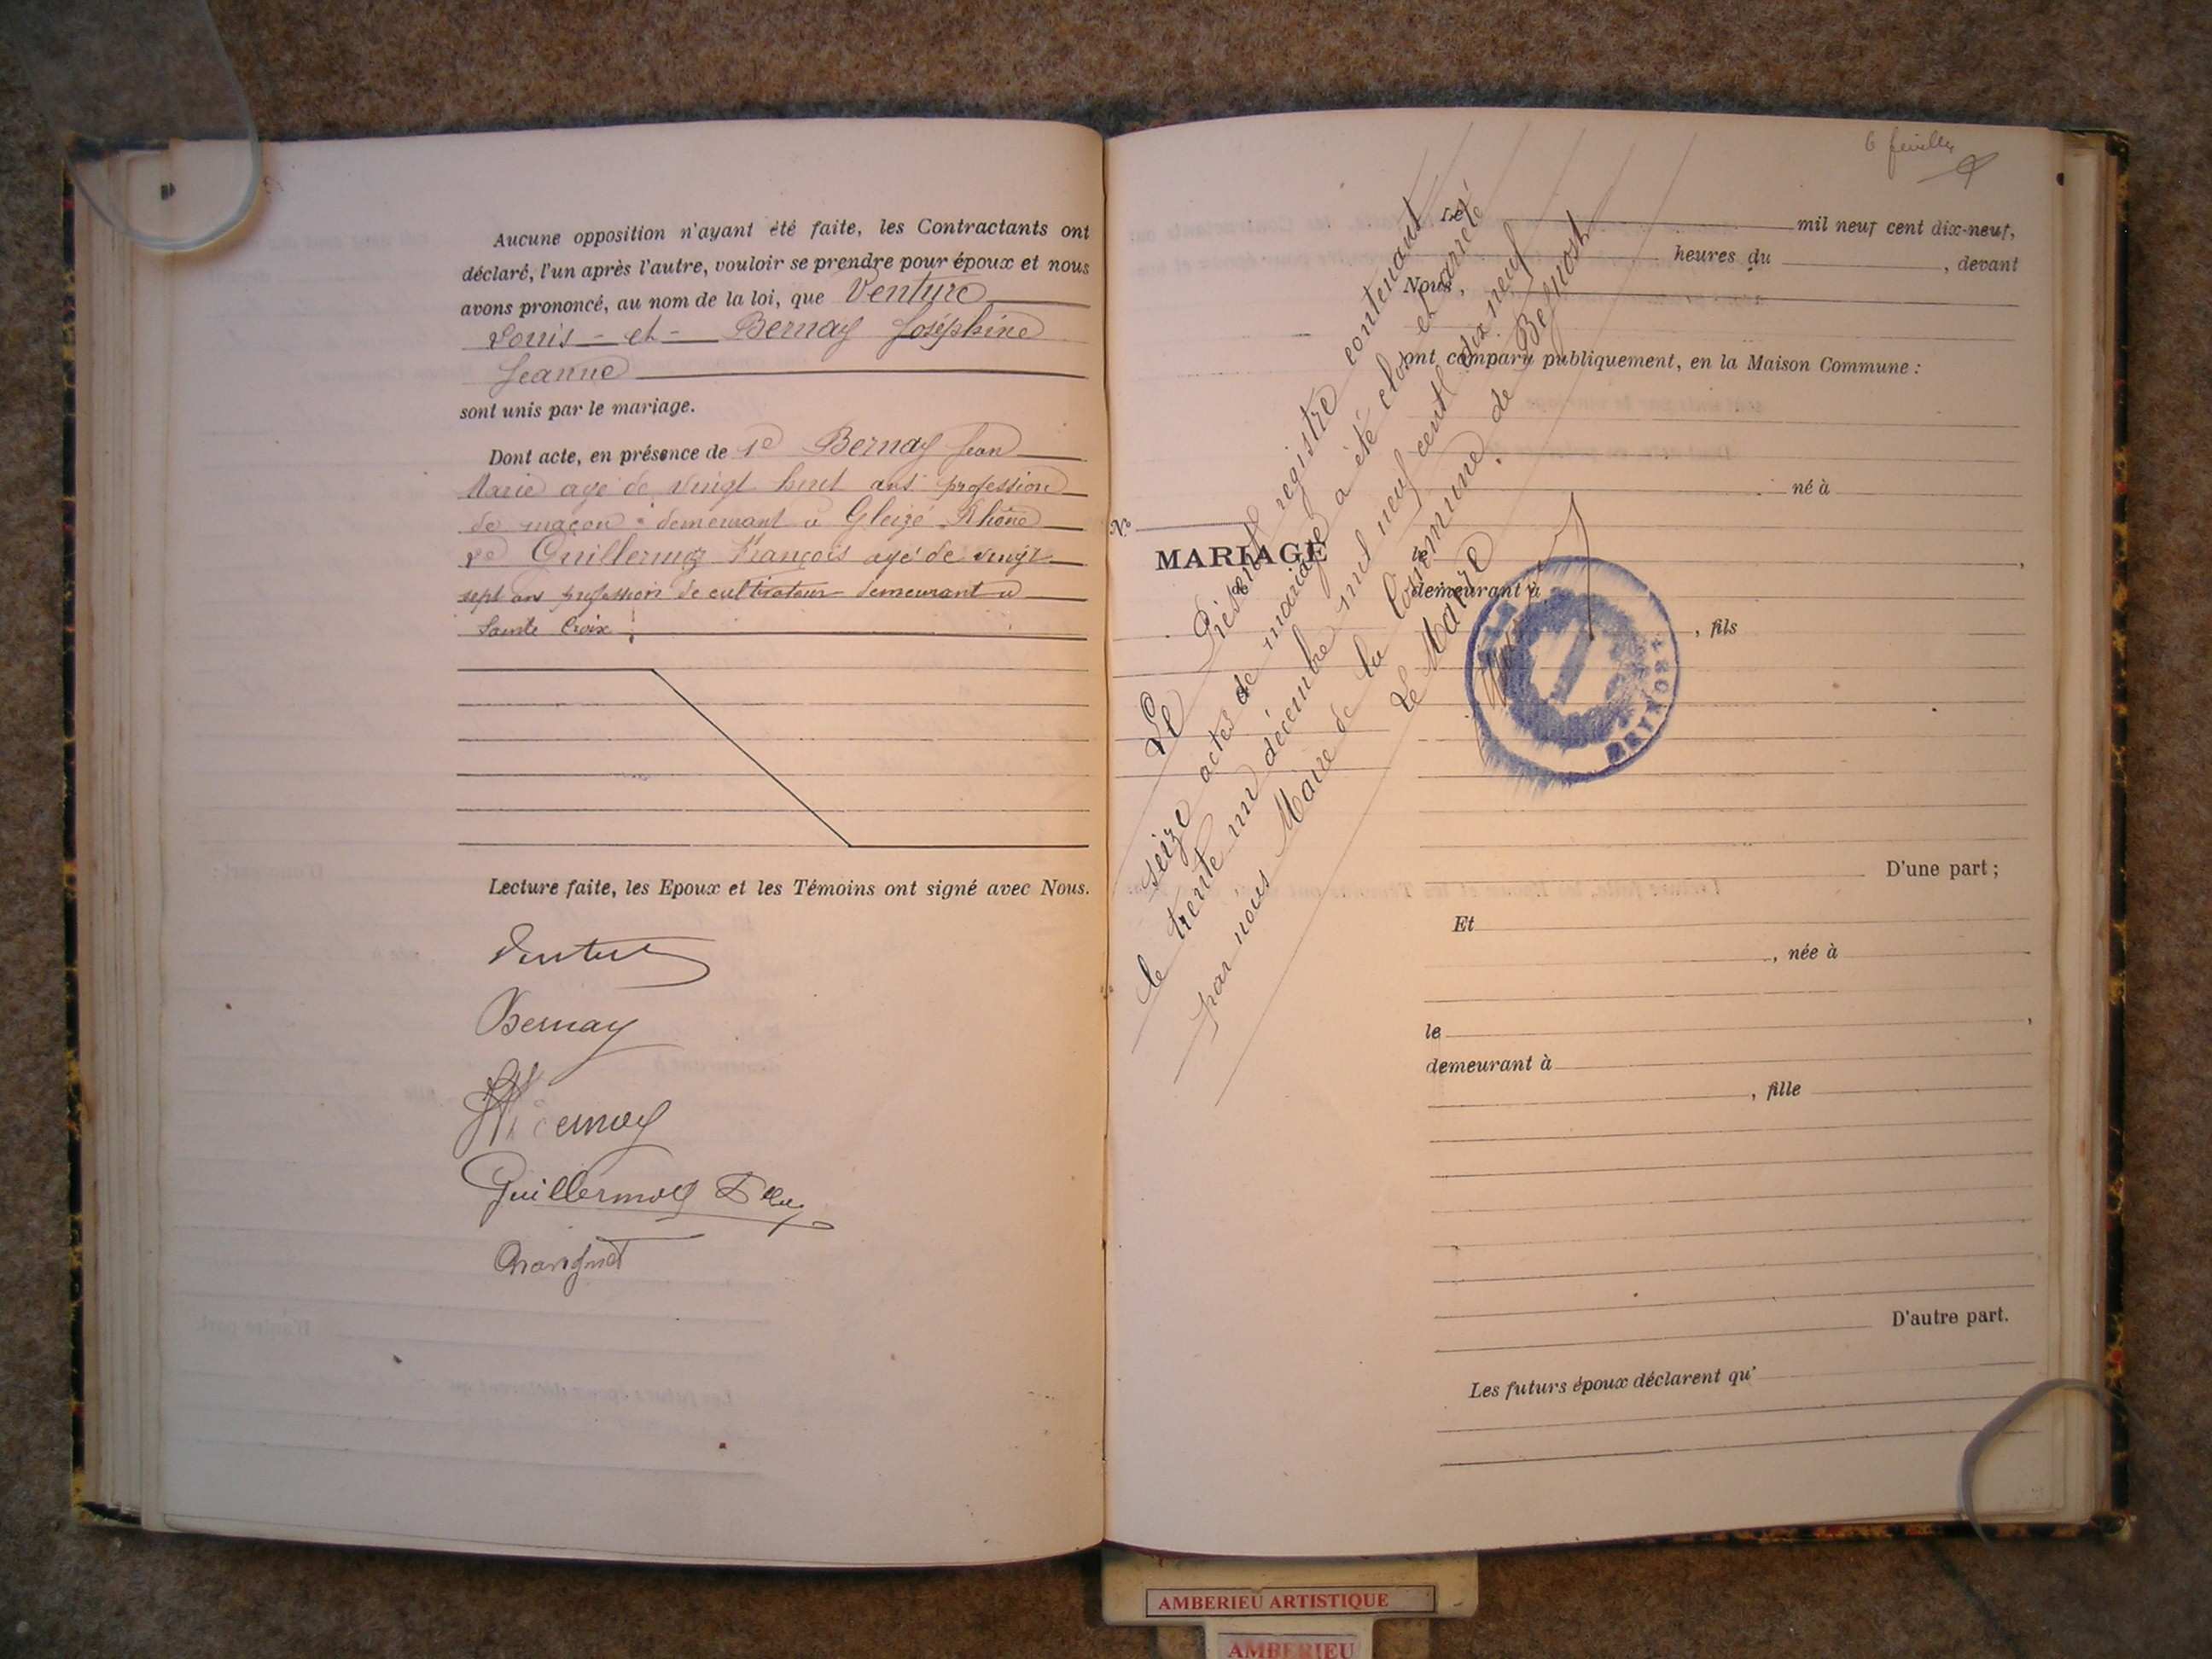 Aucune opposition n'ayant été faite, les Contractants ont
déclaré, l'un après l'autre, vouloir se prendre pour époux et nous
avons prononcé, au nom de la loi, que Venture
Louis - et - Bernay Joséphine
Jeanne
sont unis par le mariage.
Dont acte, en présence de 1º Bernay Jean
Marie agé de vingt huit ans profession
de maçon demeurant à Gleizé Rhône
2º Guillermoz François agé de vingt
sept ans profession de cultivateur demeurant à
Sainte Croix
Lecture faite, les Epoux et les Témoins ont signé avec Nous.
Venture
Bernay
Bernay
Guillermoz
6 feuilles
Le mil neuf cent dix-neuf,
heures du , devant
Nous,
ont comparu publiquement, en la Maison Commune :
né à
Nº
MARIAGE
le
demeurant à
, fils
D'une part ;
Et
, née à
le
demeurant à
, fille
D'autre part.
Les futurs époux déclarent qu'
Le Présent registre contenant
seize actes de mariage a été clos et arrêté
le trente un décembre mil neuf cent dix neuf
par nous Maire de la Commune de Beynost
Le Maire
BEYNOST
AMBERIEU ARTISTIQUE
AMBERIEU